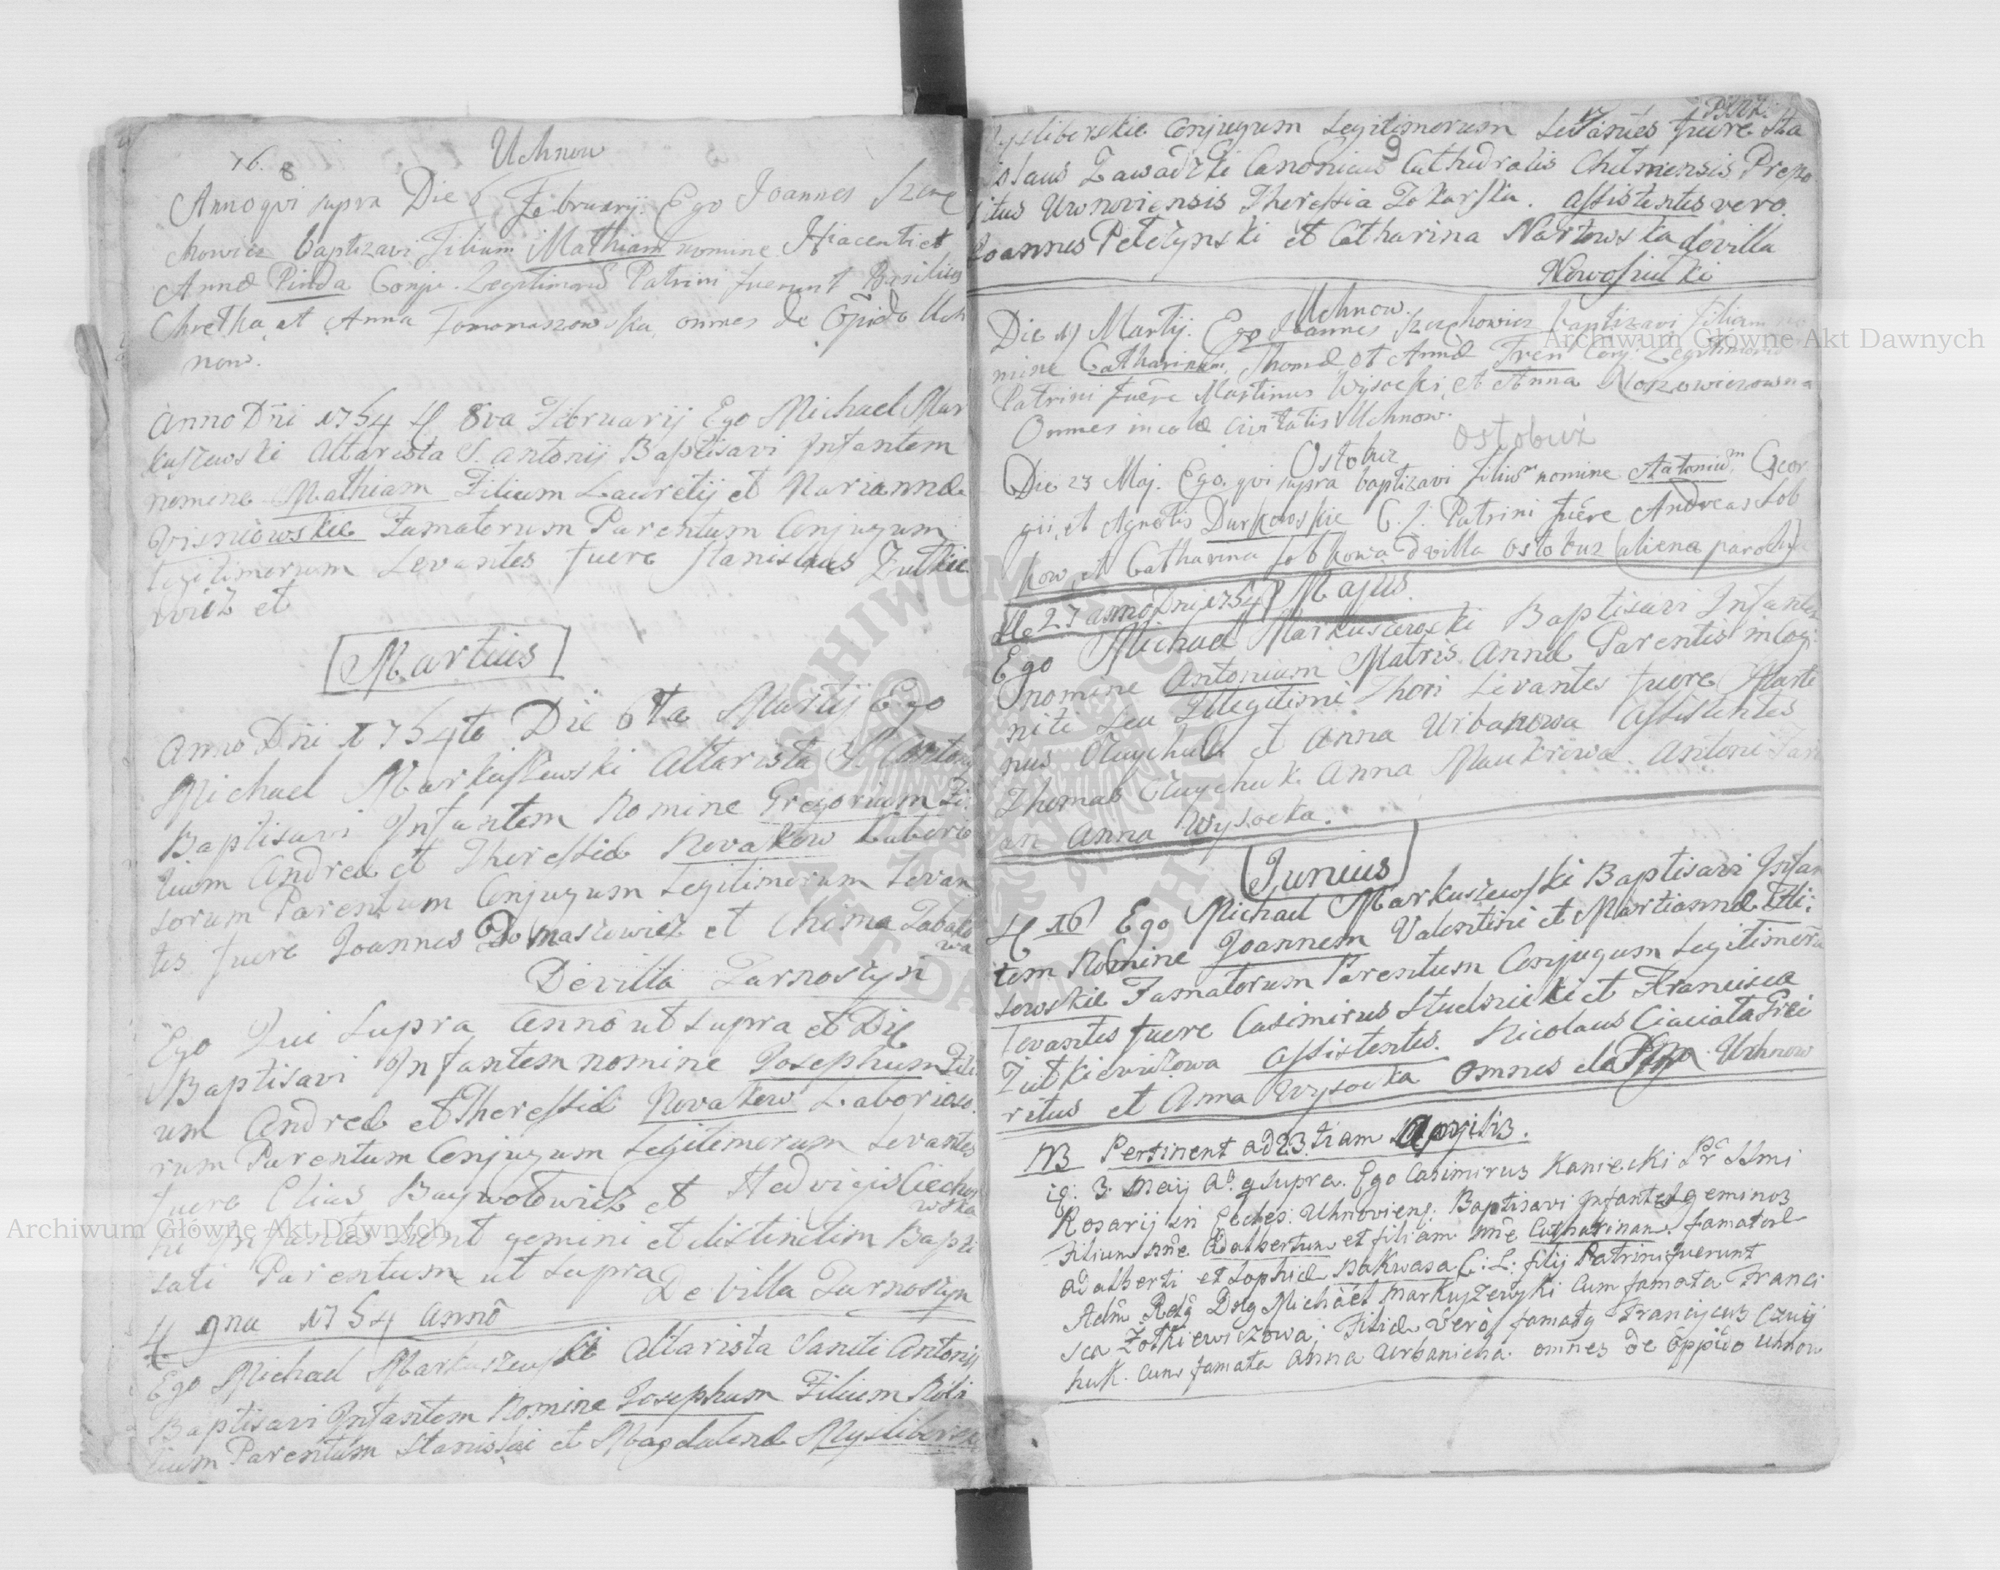 16.
8
Uchnow
Anno qvi supra Die 6 Februarij. Ego Joannes Szcze
chowicz baptizavi Filium Mathiam nomine Hiacenti et
Annæ Pinda Conju. Legitimoru Patrini fuerunt Basilius
Chretka, et Anna Tomaszowska omnes de Oppido Uch
now.
Anno Dñi 1754 D 8va Februarij Ego Michael Mar
kuszewski Altarista S. Antonij Baptisavi Infantem
nomine Mathiam Filium Lauretij et Mariannæ
Wisniowskie Famatorum Parentum Conjugum
Legitimorum Levantes fuere Stanislaus Zutkie
wicz et
Martius
Anno Dñi 1754to Die 6ta Martij Ego
Michael Markuszewski Altarista S. Antonij
Baptisavi Infantem Nomine Gregorium Fi
lium Andreæ et Theressiæ Novakow Laborio
sorum Parentum Conjugum Legitimorum Levan
tes fuere Joannes Tomaszewicz et Chima Zabalo
wa
De villa Tarnoszyn
Ego Qui Supra Anno ut Supra et Die
Baptisavi Infantem nomine Josephum Fili
um Andreæ et Theressiæ Novakow Laborioso
rum Parentum Conjugum Legitimorum Levantes
fuere Elias Baywolowicz et Hedvigis Ciechon
wska
hi Infantes Sunt gemini et distinctim Bapti
sati Parentum ut Supra
De Villa Tarnoszyn
D 9na 1754 Anno
Ego Michael Markuszewski Altarista Sancti Antonij
Baptisavi Infantem Nomine Josephum Filium Nobi
lium Parentum Stanislai et Magdalenæ Mysliborskie
9
Mysliborskie Conjugum Legitimorum Levantes fuere Sta
islaus Zawadzki Canonicus Cathedralis Chelmensis Prepo
situs Uwnoviensis Theressia Tokarska. Assistentes vero
Joannes Petczynski et Catharina Nartowska de villa
Nowosiułki
Uchnow.
Die 17 Martij. Ego Joannes Szczechowicz baptizavi filiam no
mine Catharinam, Thomæ et Annæ Fren Conj. Legitimoru
Patrini fuêre Martinus Wysocki, et Anna Nozowiczowna
Omnes incolæ civitatis Uchnow.
Ostobuż
Ostobuz
Die 23 Maj. Ego qvi supra baptizavi filium nomine Antonium Geor
gii, et Agnetis Durkowskie C. L. Patrini fuêre Andreas Sob
kow, et Catharina Sobkowa d villa Ostobuz (aliena parochia
Majus.
Die 27 Anno Dni 1754
Ego Michael Markuszewski Baptisavi Infantem
nomine Antonium Matris Annæ Parentis incog
nite seu Illegitimi Thori Levantes fuere Marti
nus Olaychuk et Anna Urbanowa Assistentes
Thomas Olaychuk Anna Maukiewa. Antoni
an Anna Wysocka.
Junius
D 16 Ego Michael Markuszewski Baptisavi Infan
tem Nomine Joannem Valentini et Mariannæ
sowskie Famatorum Parentum Conjugum Legitimoru
Levantes fuere Casimirus Studnicki et Francisca
Zutkiewiczowa Assistentes. Nicolaus Ciaciata Præi
ritus et Anna Wysocka Omnes de Oppo Uchnow
NB Pertinent ad 23. tiam Aprilis.
ig. 3. Maij Aº. q supra. Ego Casimirus Kaniecki Pr SSmi
Rosarij in Eccles: Uhnoviens: Baptisavi Infantes geminos
Filium nñe Adalbertum et filiam nñe Catharinam famatoru
Adalberti et Sophiæ Nakwasa C: L: filij Patrini fuerunt
Adm Rndg Dng Michael Markuszewski cum famata Franci
sca Zołkiewiczowa; Filiæ verò famatg Franciscus Czuy
huk. cum famata Anna Urbanicha. omnes de oppido Uhnow
Archiwum Główne Akt Dawnych
Archiwum Główne Akt Dawnych